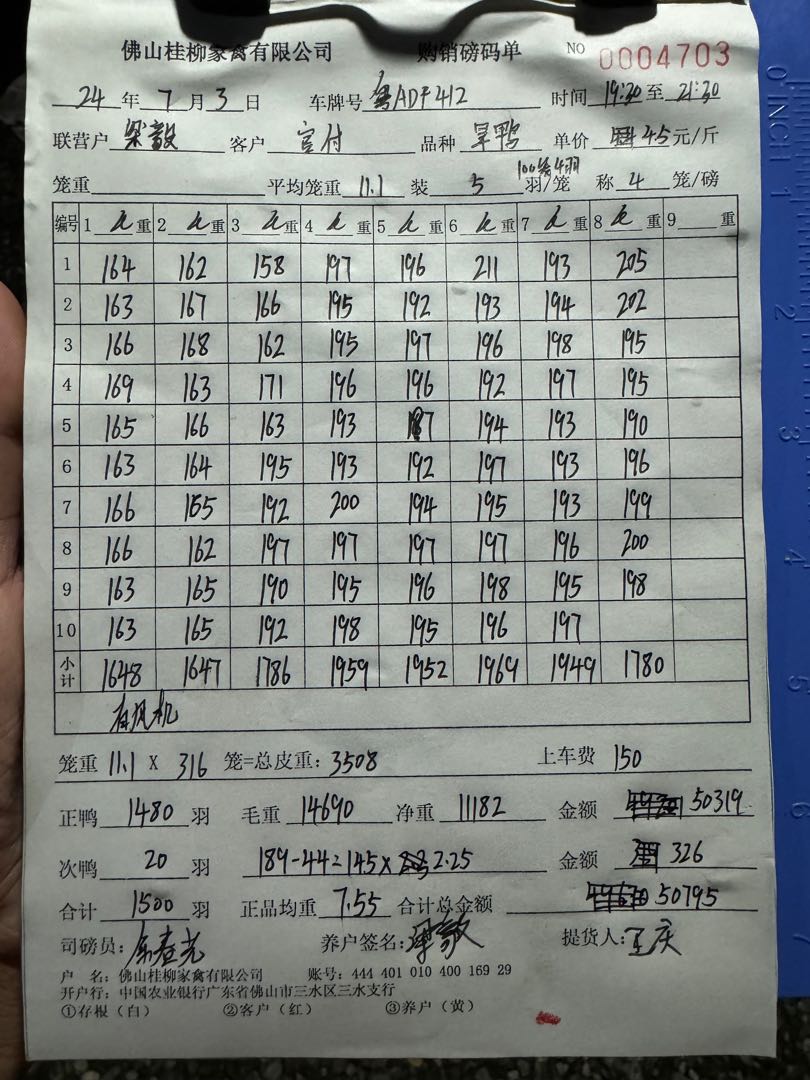 佛山桂柳家禽有限公司 购销磅码单 NO 0004703
24年7月3日 车牌号 粤ADF412 时间 19:30至21:30
联营户 梁敬 客户 官付 品种 旱鸭 单价 4.5元/斤
笼重 平均笼重 11.1 装 5 羽/笼 称 4 笼/磅
编号 1 重 2 重 3 重 4 重 5 重 6 重 7 重 8 重 9 重
1 164 162 158 197 196 211 193 205
2 163 167 166 195 192 193 194 202
3 166 168 162 195 197 196 198 195
4 169 163 171 196 196 192 197 195
5 165 166 163 193 194 193 190
6 163 164 195 193 192 197 193 196
7 166 165 192 200 194 195 193 199
8 166 162 197 197 197 197 196 200
9 163 165 190 195 196 198 195 198
10 163 165 192 198 195 196 197
小计 1648 1647 1786 1959 1952 1969 1949 1780
有风机
笼重 11.1 X 316 笼=总皮重: 3508 上车费 150
正鸭 1480 羽 毛重 14690 净重 11182 金额 50319
次鸭 20 羽 189-44=145× 2.25 金额 326
合计 1500 羽 正品均重 7.55 合计总金额 50795
司磅员: 养户签名: 提货人:
户 名: 佛山桂柳家禽有限公司 账号: 444 401 010 400 169 29
开户行: 中国农业银行广东省佛山市三水区三水支行
①存根（白） ②客户（红） ③养户（黄）